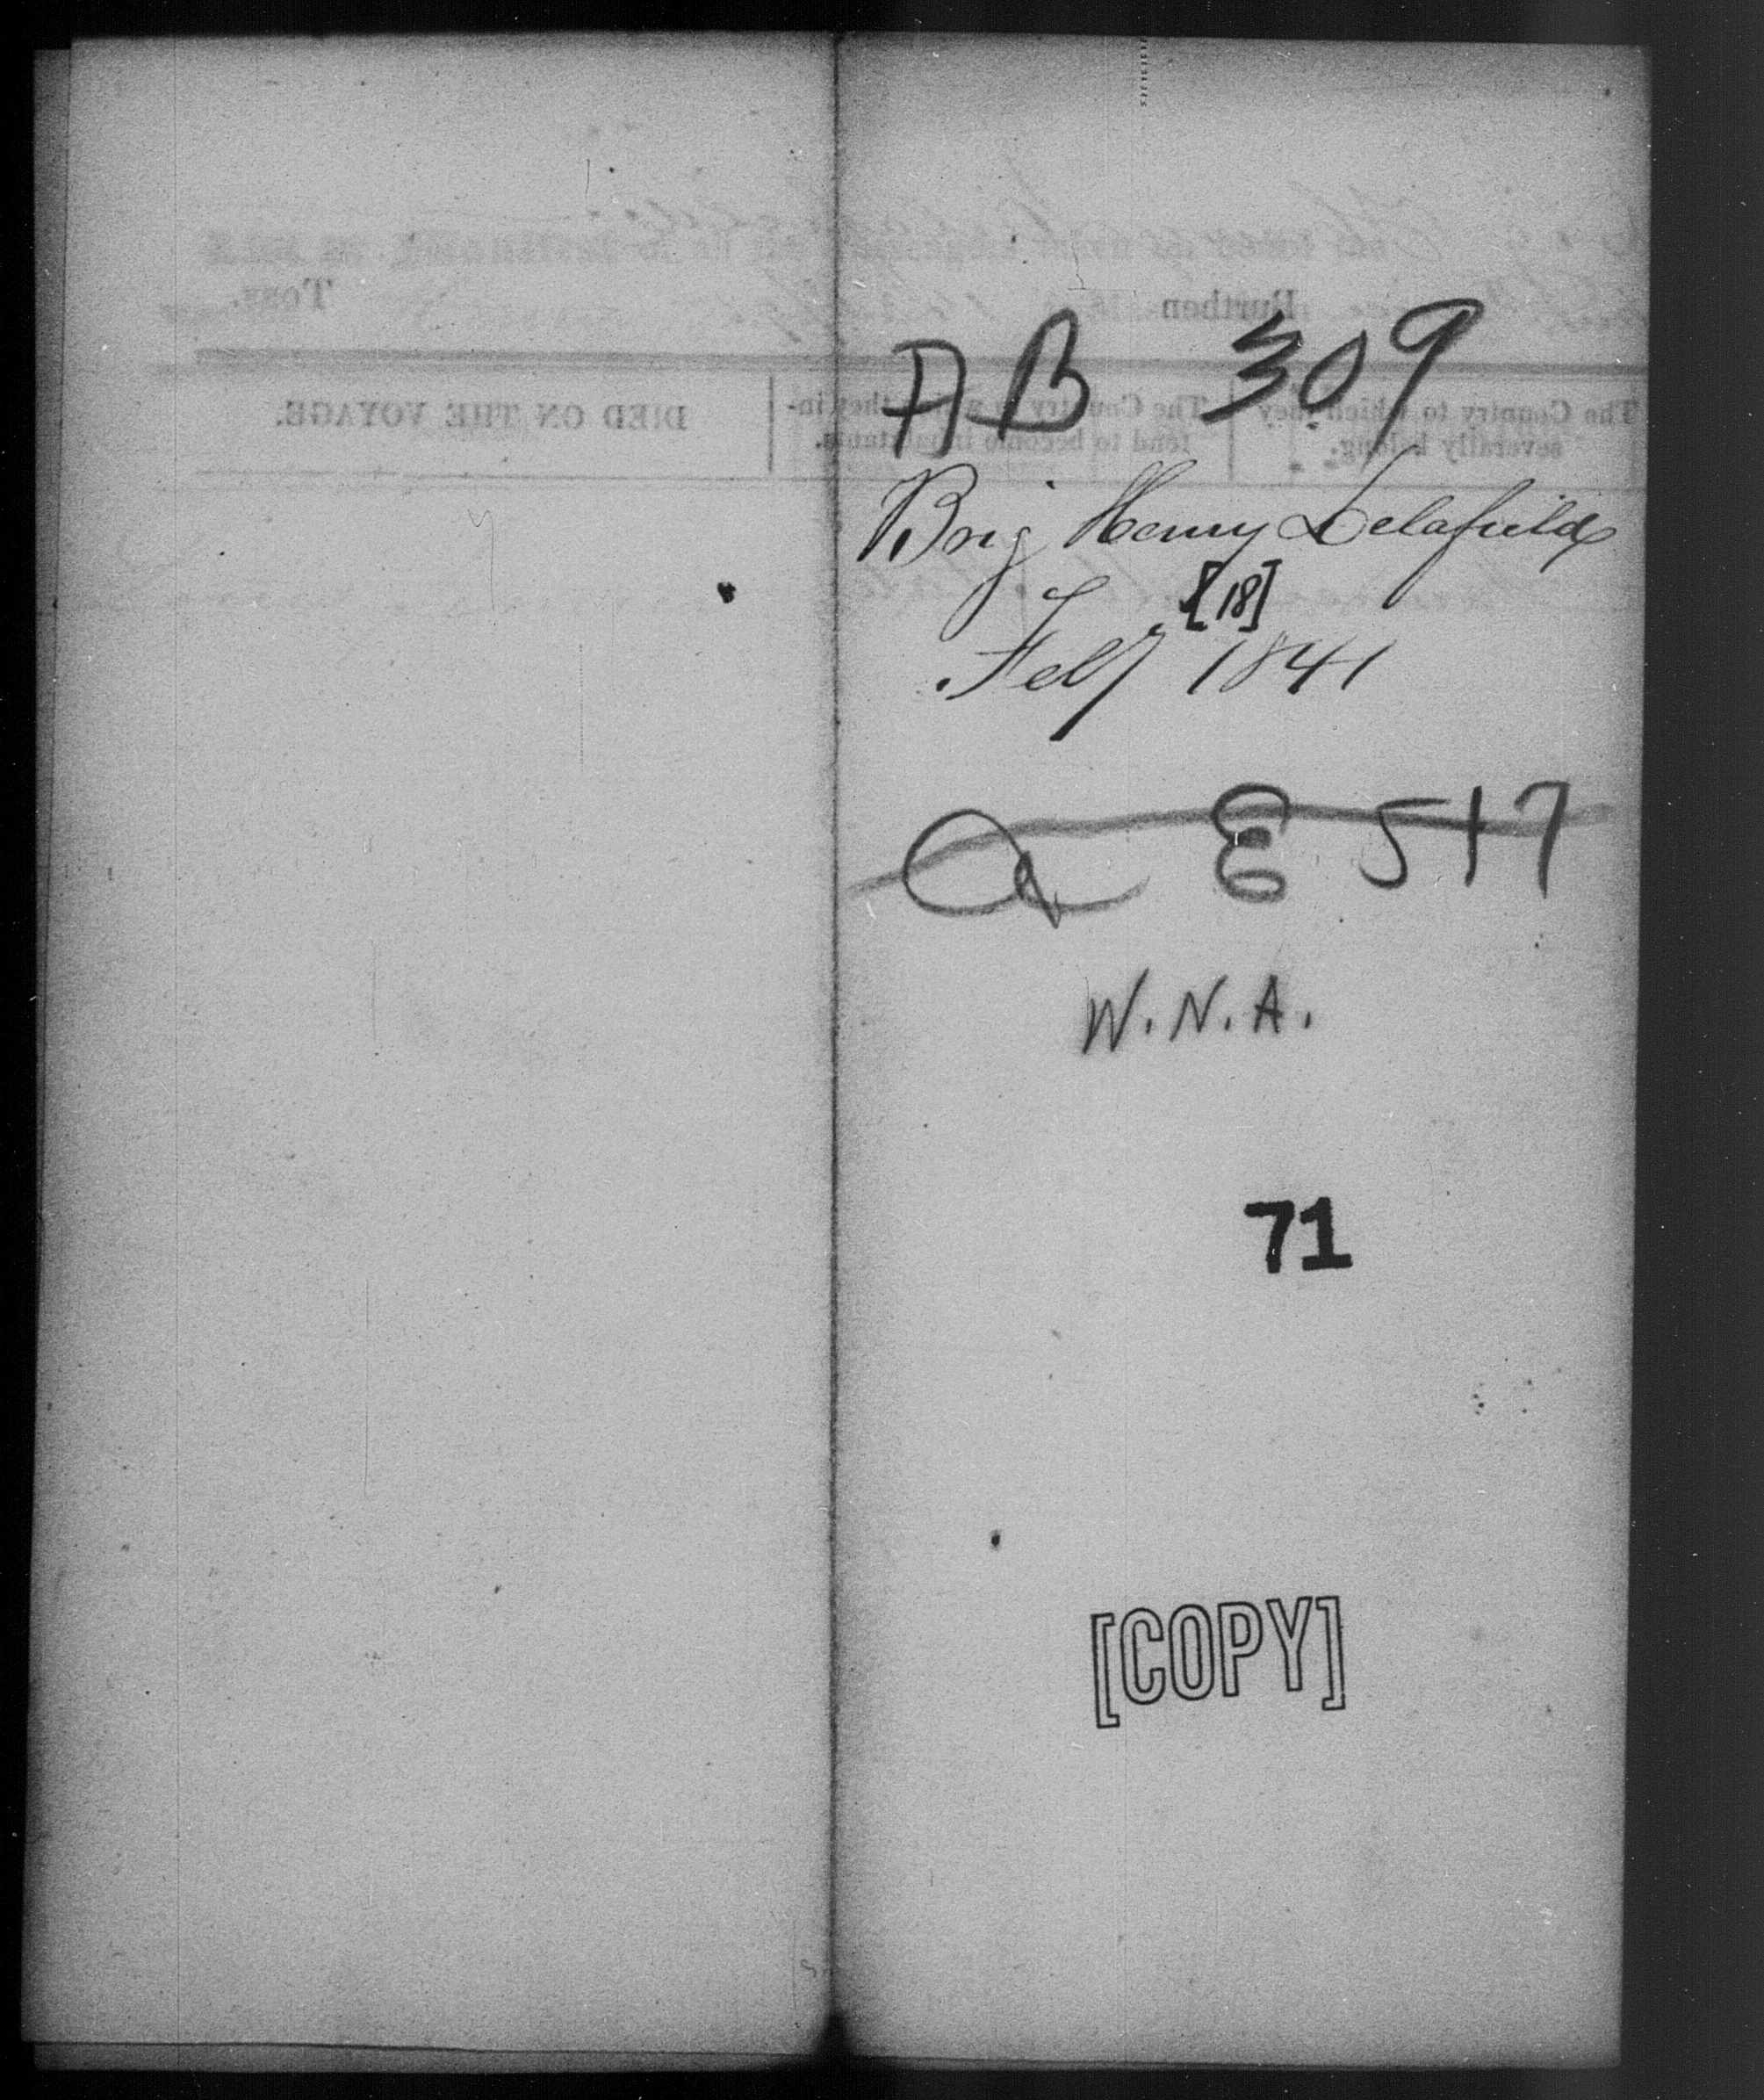 AB 309
Brig Henry Delafield
[18]
Feby 1841
Q E 517
W.N.A.
71
[COPY]
Burthen
Tons.
The Country to which they severally belong.
The Country in which they in-
tend to become inhabitants.
DIED ON THE VOYAGE.